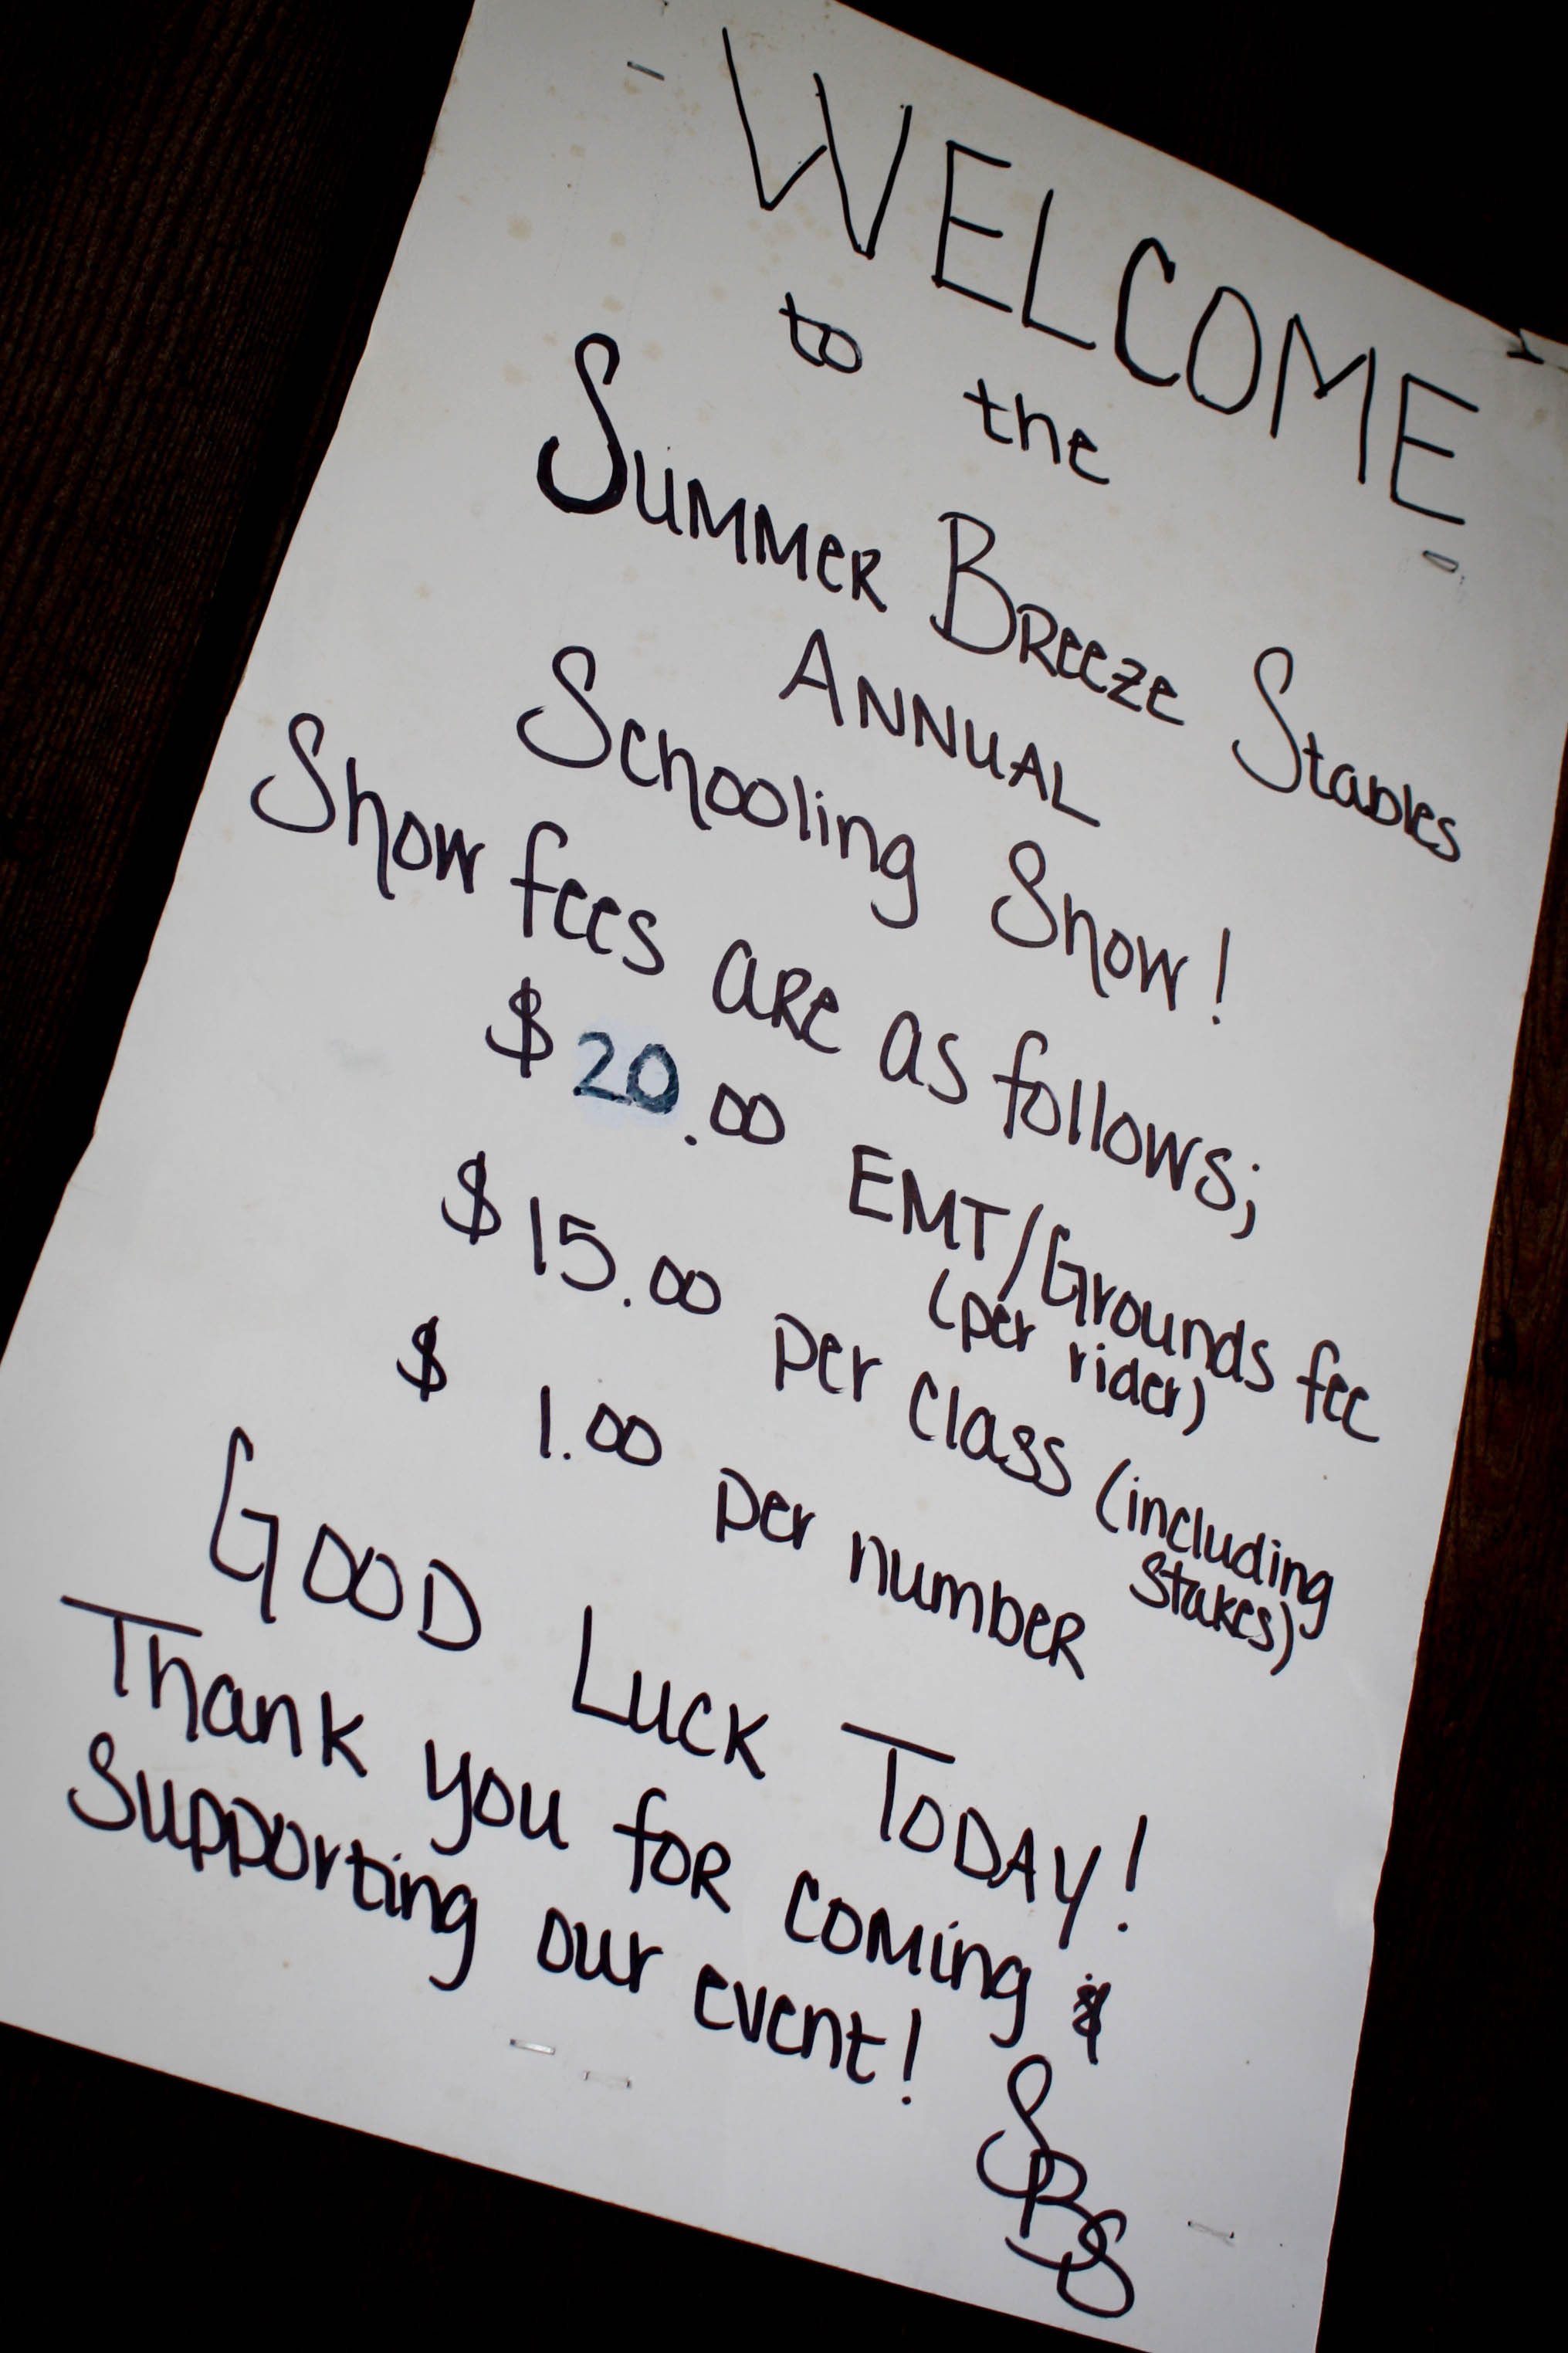 WELCOME
to the
Summer Breeze Stables
Annual
Schooling Show!
Show fees are as follows;
$20.00 EMT/Grounds fee
(per rider)
$15.00 per class (including
Stakes)
$ 1.00 per number
Good Luck Today!
Thank you for coming &
Supporting our event!
SBS